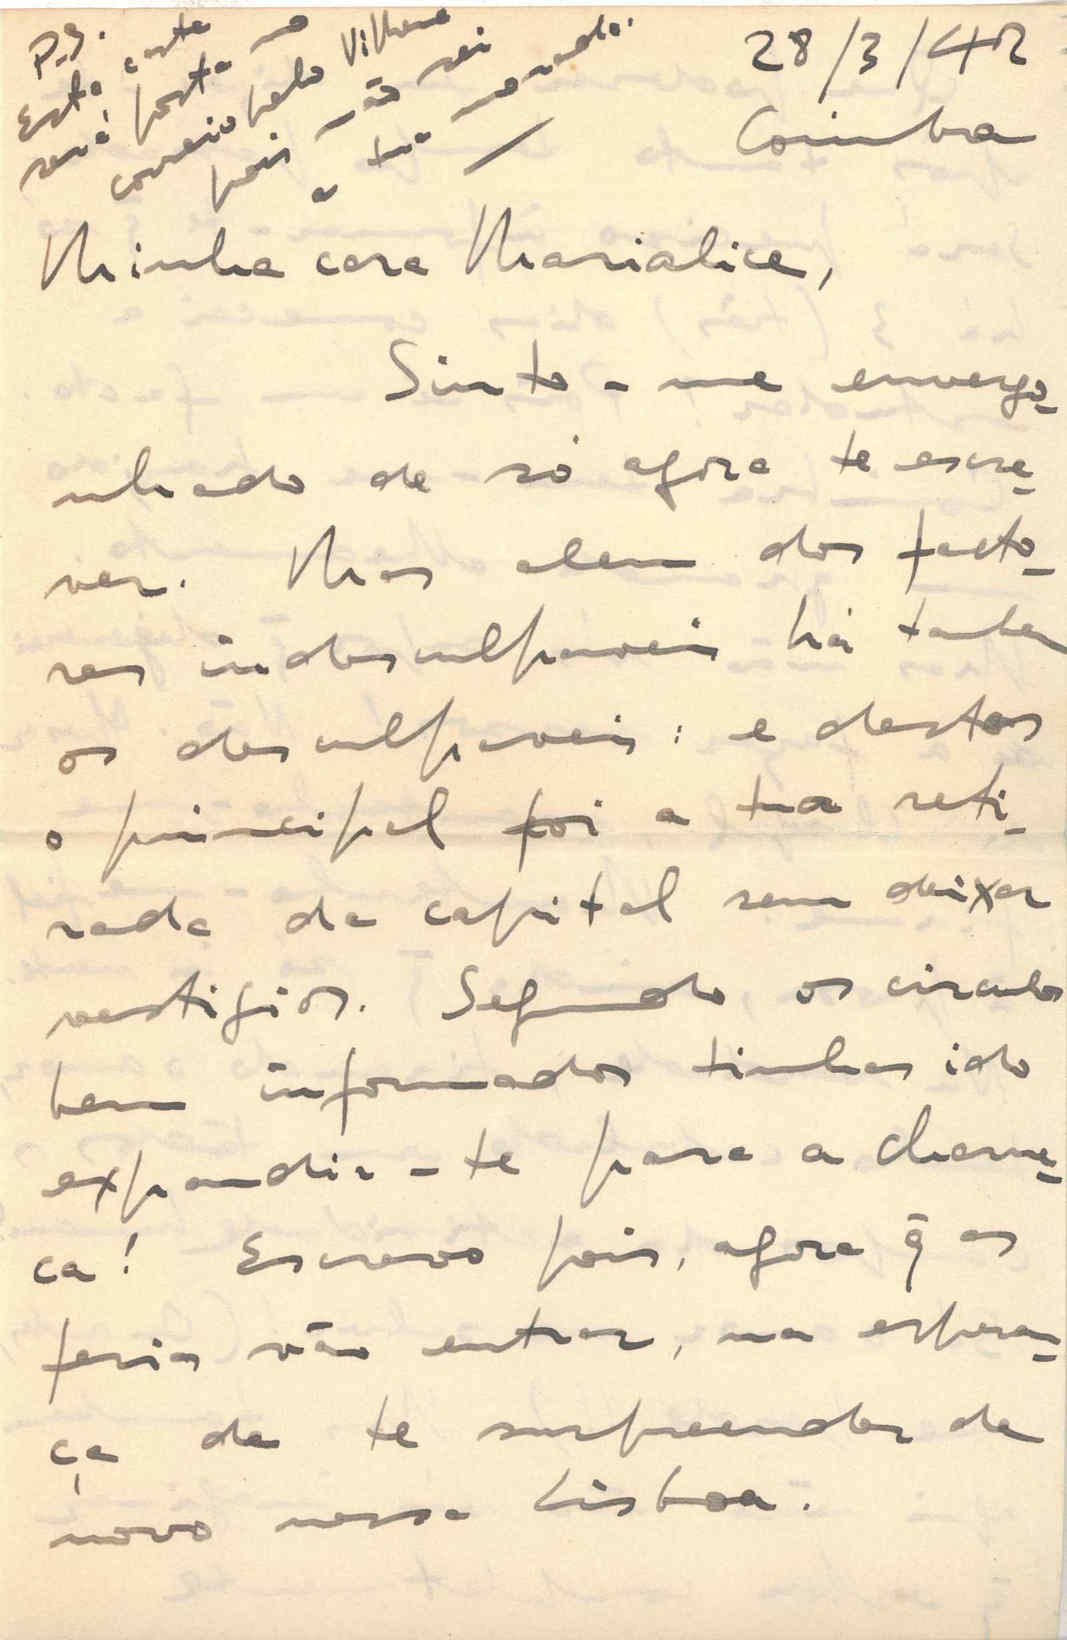 P.S.
Esta carta
será posta no
correio pelo Vilhena
pois não sei
a tua morada.
28/3/42
Coimbra
Minha cara Marialice,
Sinto-me envergo-
nhado de só agora te escre-
ver. Mas alem dos facto-
res indesculpaveis há tambem
os desculpaveis: e destes
o principal foi a tua reti-
rada da capital sem deixar
vestigios. Segundo os circulos
bem informados tinhas ido
expandir-te para a charne-
ca! Escrevo pois, agora q̃ as
ferias vão entrar, na esperan-
ça de te surpreender de
novo nessa Lisboa.